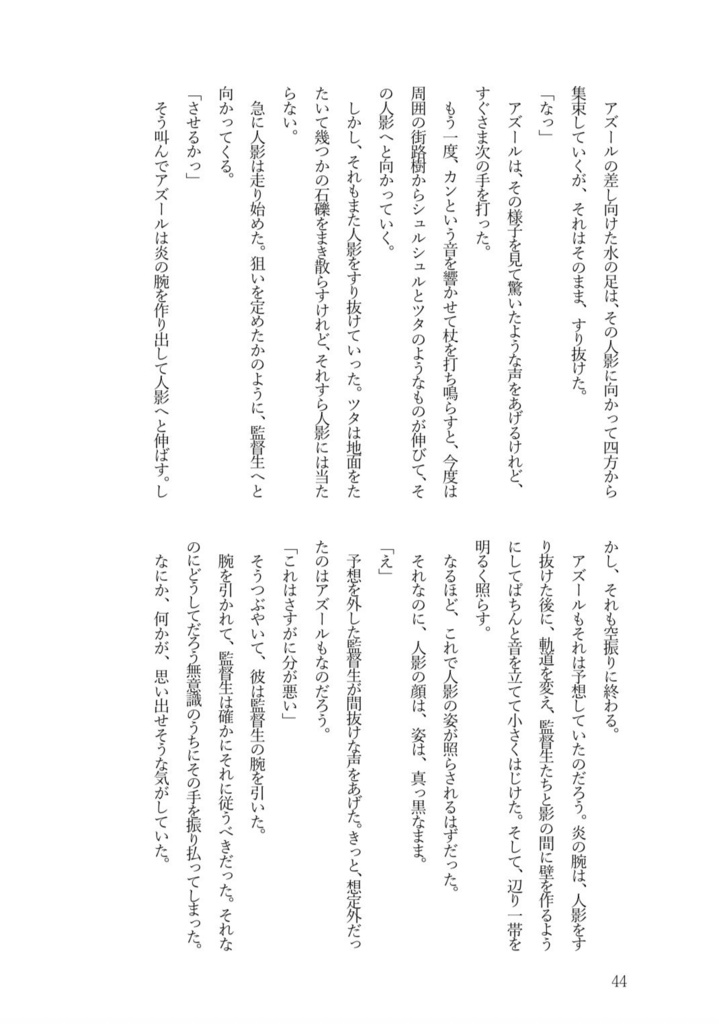 アズールの差し向けた水の足は、その人影に向かって四方から
集束していくが、それはそのまま、すり抜けた。
「なっ」
　アズールは、その様子を見て驚いたような声をあげるけれど、
すぐさま次の手を打った。
　もう一度、カンという音を響かせて杖を打ち鳴らすと、今度は
周囲の街路樹からシュルシュルとツタのようなものが伸びて、そ
の人影へと向かっていく。
　しかし、それもまた人影をすり抜けていった。ツタは地面をた
たいて幾つかの石礫をまき散らすけれど、それすら人影には当た
らない。
　急に人影は走り始めた。狙いを定めたかのように、監督生へと
向かってくる。
「させるかっ」
　そう叫んでアズールは炎の腕を作り出して人影へと伸ばす。し
かし、それも空振りに終わる。
　アズールもそれは予想していたのだろう。炎の腕は、人影をす
り抜けた後に、軌道を変え、監督生たちと影の間に壁を作るよう
にしてぱちんと音を立てて小さくはじけた。そして、辺り一帯を
明るく照らす。
　なるほど、これで人影の姿が照らされるはずだった。
　それなのに、人影の顔は、姿は、真っ黒なまま。
「え」
　予想を外した監督生が間抜けな声をあげた。きっと、想定外だっ
たのはアズールもなのだろう。
「これはさすがに分が悪い」
　そうつぶやいて、彼は監督生の腕を引いた。
　腕を引かれて、監督生は確かにそれに従うべきだった。それな
のにどうしてだろう無意識のうちにその手を振り払ってしまった。
　なにか、何かが、思い出せそうな気がしていた。
44